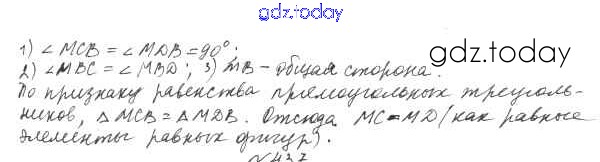 gdz.today
1) ∠MCB = ∠MDB = 90°.
gdz.today
2) ∠MBC = ∠MBD; 3) MB – общая сторона.
По признаку равенства прямоугольных треуголь-
ников, △MCB = △MDB. Отсюда MC = MD (как равные
элементы равных фигур).
№437